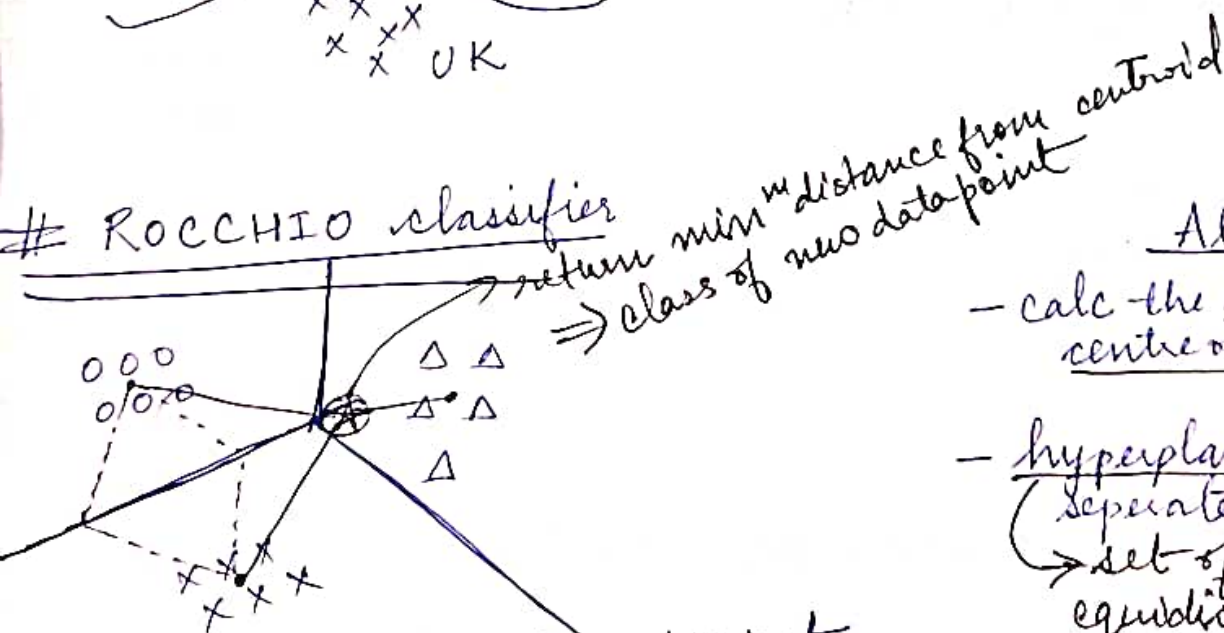 UK
# ROCCHIO classifier
return min^m distance from centroid
⇒ class of new datapoint
- calc the
centre
- hyperpla
seperate
→ set
equidis